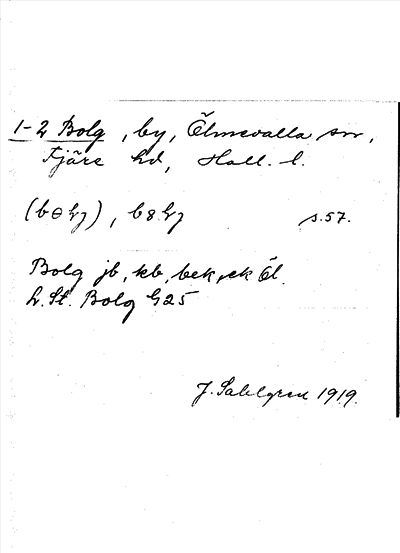 1-2 Bolg, by, Ölmevalla sn,
Fjäre hd, Hall. l.
s.57.
Bolg jb, kb, bek, ck Öl.
L. St. Bolg G25
J. Sahlgren 1919.